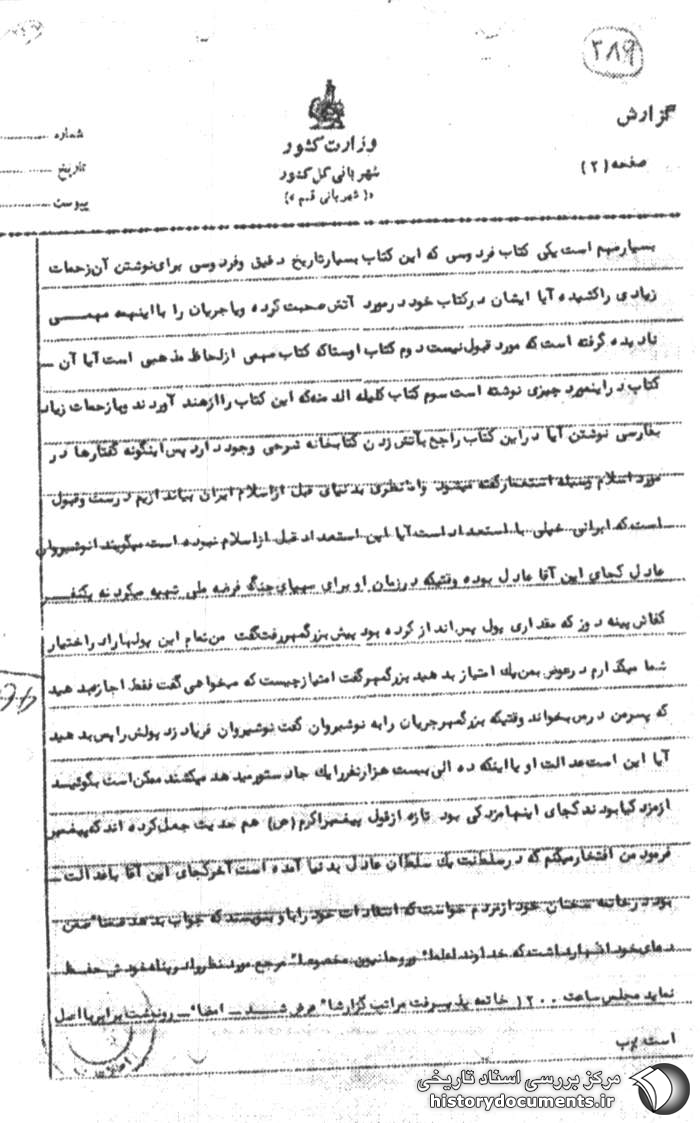 ۳۸۹
گزارش
صفحه (۲)
وزارت کشور
شهربانی کل کشور
«( شهربانی قم )»
شماره
تاریخ
پیوست
بسیار مهم است یکی کتاب فردوسی که این کتاب بسیار تاریخ دقیق وفردوسی برای نوشتن آن زحمات
زیادی راکشیده آیا ایشان درکتاب خود درمورد آتش صحبت کرده ویا جریان را با اینهمه مهمـــی
نادیده گرفته است که مورد قبول نیست دوم کتاب اوستاکه کتاب مهمی ازلحاظ مذهبی است آیا آن ــ
کتاب دراینمورد چیزی نوشته است سوم کتاب کلیله الدمنه که این کتاب راازهند آوردند وبازحمات زیاد
بفارسی نوشتن آیا دراین کتاب راجع بآتش زدن کتابخانه شرحی وجود دارد پس اینگونه گفتارها در
مورد اسلام وسیله استعمارگفته میشود واما نظری بدنیای قبل ازاسلام ایران بیاندازیم درست وقبول
است که ایرانی خیلی با استعداد است آیا این استعداد قبل ازاسلام نبوده است میگویند انوشیروان
عادل کجای این آقا عادل بوده وقتیکه درزمان او برای سپهای جنگ قرضه ملی تهیه میکردند یکنفـــر
کفاش پینه دوز که مقداری پول پس انداز کرده بود پیش بزرگمهررفت گفت من تمام این پولهاراد راختیار
شما میگذارم درعوض بمن یك امتیاز بدهید بزرگمهرگفت امتیازچیست که میخواهی گفت فقط اجازه بدهید
که پسرمن درس بخواند وقتیکه بزرگمهرجریان رابه نوشیروان گفت نوشیروان فریاد زد پولش راپس بدهید
آیا این است عدالت او یا اینکه ده الی بیست هزارنفررایك جا دستورمیدهد میکشند ممکن است بگوئیسد
ازمزدکیا بودند کجای اینها مزدکی بود تازه ازقول پیغمبراکرم (ص) هم حدیث جعل کرده اند که پیغمبر
فرمود من افتخار میکنم که درسلطنت یك سلطان عادل بدنیا آمده است آخرکجای این آقا باعدالت ــ
بود درخاتمه سخنان خود ازمردم خواست که انتقادات خود رابا و بنویسند که جواب بدهد ضمنا" ضمن
دعای خود اظهارداشت که خداوند روحانیون مخصوصا" مرجع مورد نظررادرپناه خودش حفـــظ
نماید مجلس ساعت ۱۲۰۰ خاتمه پذیرفت مراتب گزارشا" عرض شـــد ــ امضا" ــ رونوشت برابربااصل
است
مرکز بررسی اسناد تاریخی
historydocuments.ir